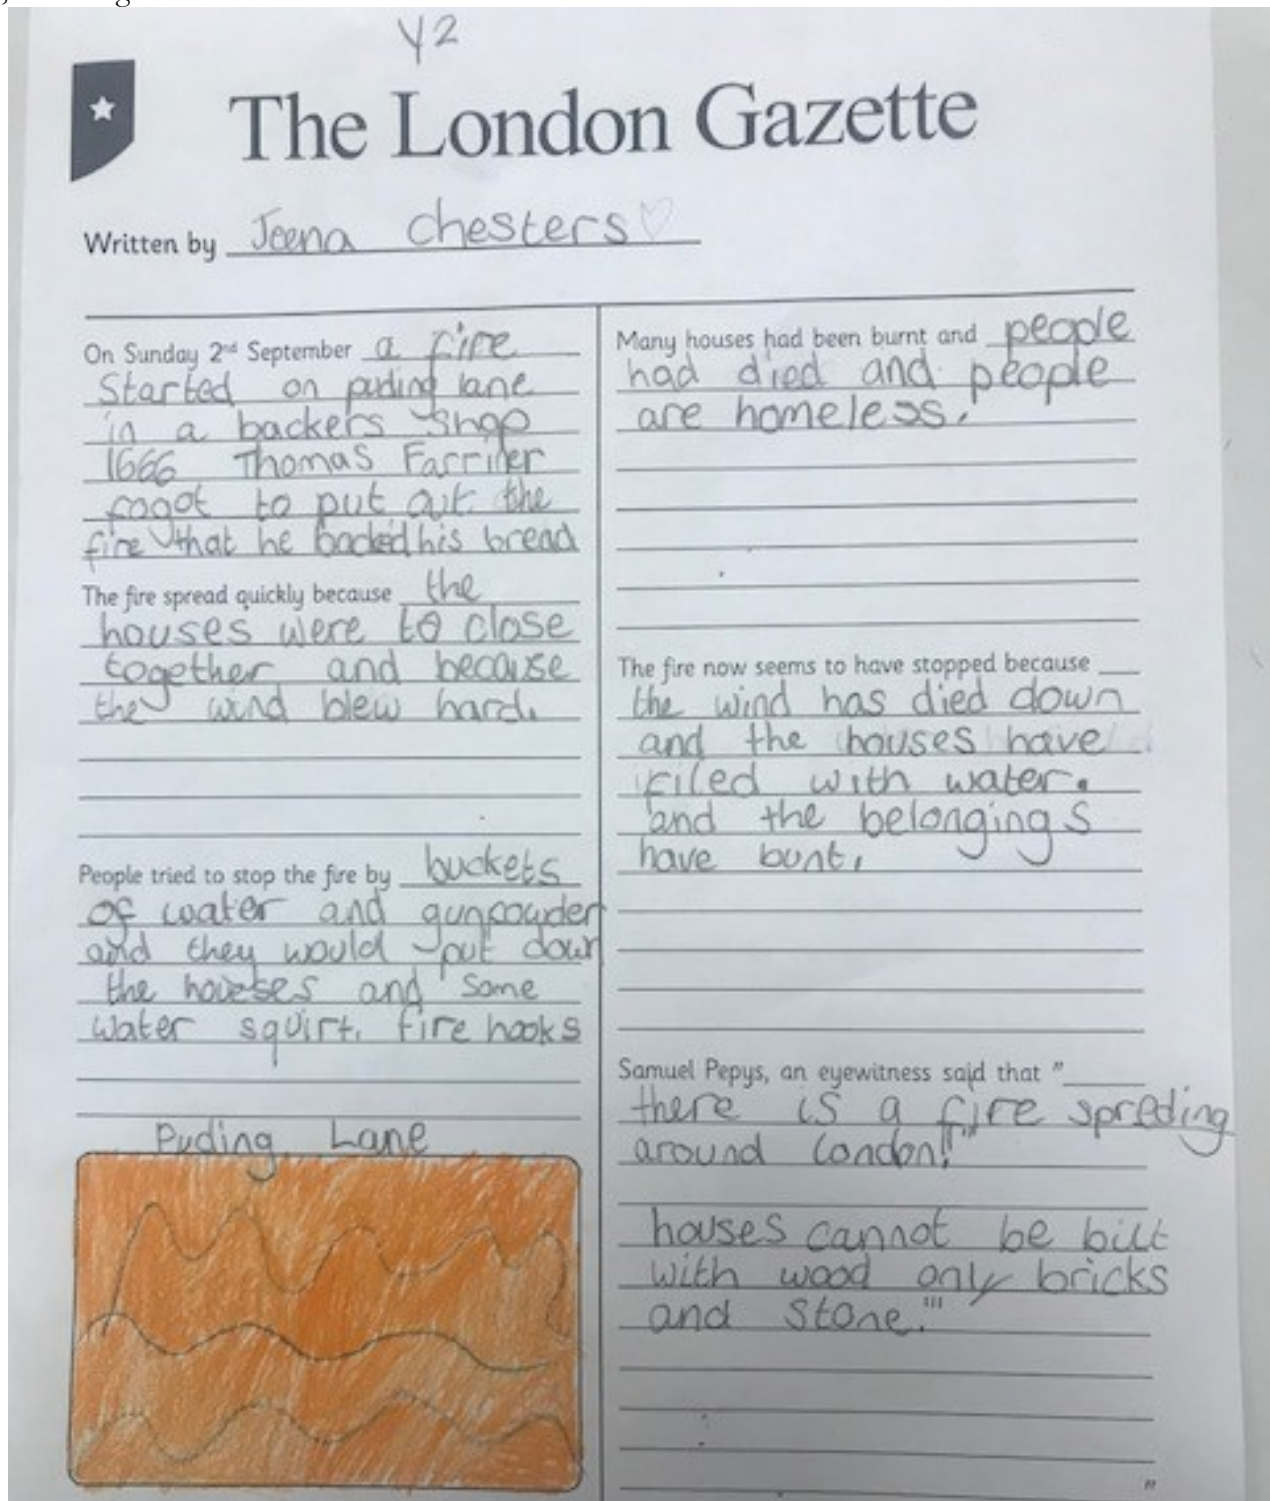 Y2
The London Gazette
Written by Jeena chesters
On Sunday 2nd September a fire
Started on puding lane
in a backers shop
1666 Thomas Farriner
fogot to put out the
fire that he backed his bread
The fire spread quickly because the
houses were to close
together and because
the wind blew hard.
People tried to stop the fire by buckets
of water and gunpowder
and they would put down
the houses and some
water squirt. fire hooks
Puding Lane
Many houses had been burnt and people
had died and people
are homeless.
The fire now seems to have stopped because
the wind has died down
and the houses have
filed with water.
and the belongings
have bunt.
Samuel Pepys, an eyewitness said that "
there is a fire spreding
around London!"
houses cannot be bilt
with wood only bricks
and stone."
"